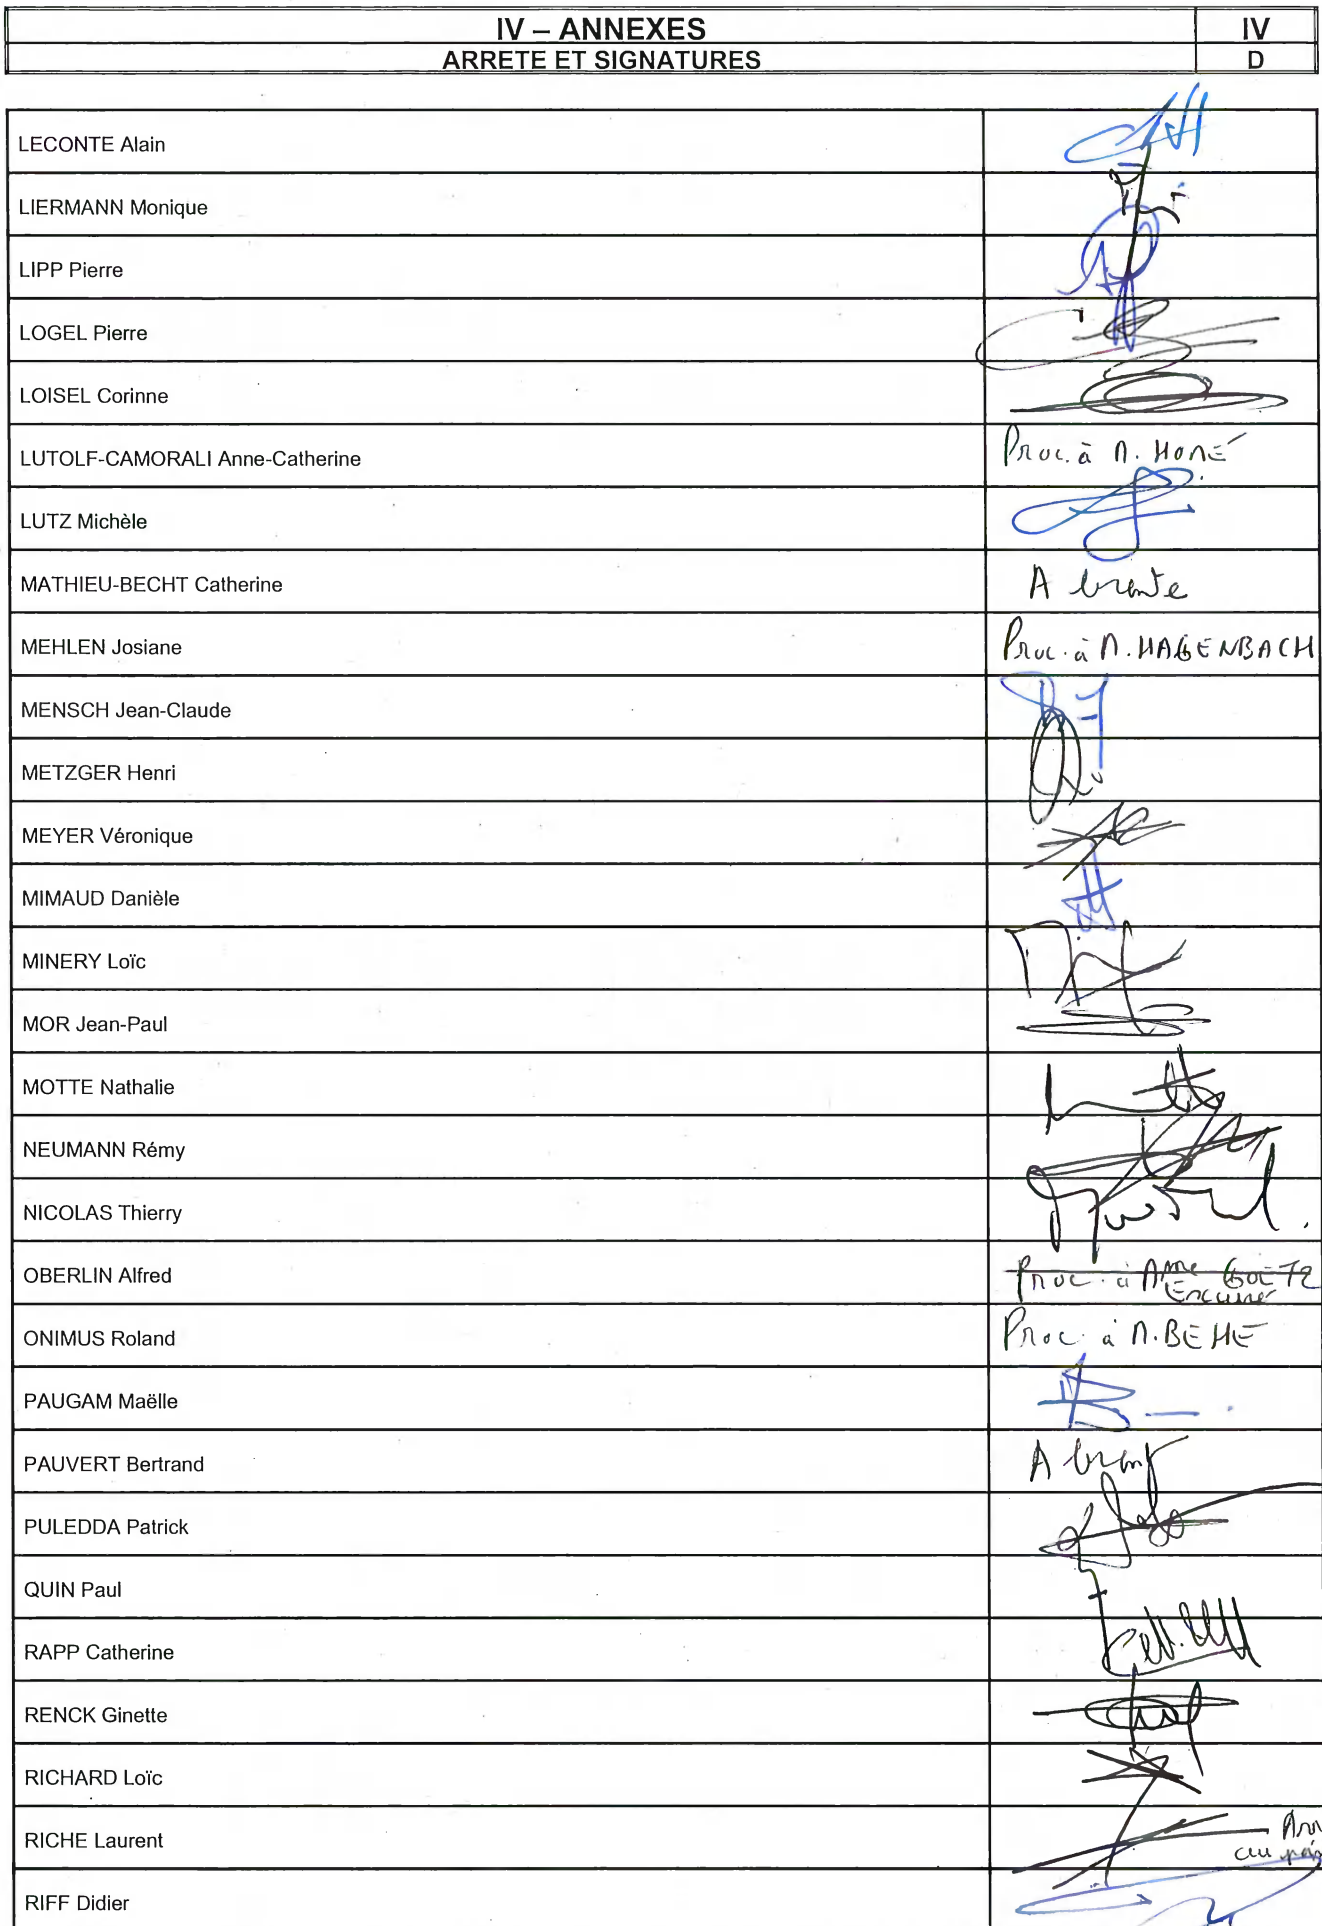 IV – ANNEXES
IV
ARRETE ET SIGNATURES
D
LECONTE Alain
LIERMANN Monique
LIPP Pierre
LOGEL Pierre
LOISEL Corinne
LUTOLF-CAMORALI Anne-Catherine
Proc. à M. HOMÉ
LUTZ Michèle
MATHIEU-BECHT Catherine
MEHLEN Josiane
Proc. à M. HAGENBACH
MENSCH Jean-Claude
METZGER Henri
MEYER Véronique
MIMAUD Danièle
MINERY Loïc
MOR Jean-Paul
MOTTE Nathalie
NEUMANN Rémy
NICOLAS Thierry
OBERLIN Alfred
Proc. à Mme GOETZ
ONIMUS Roland
Proc. à M. BEHE
PAUGAM Maëlle
PAUVERT Bertrand
PULEDDA Patrick
QUIN Paul
RAPP Catherine
RENCK Ginette
RICHARD Loïc
RICHE Laurent
RIFF Didier